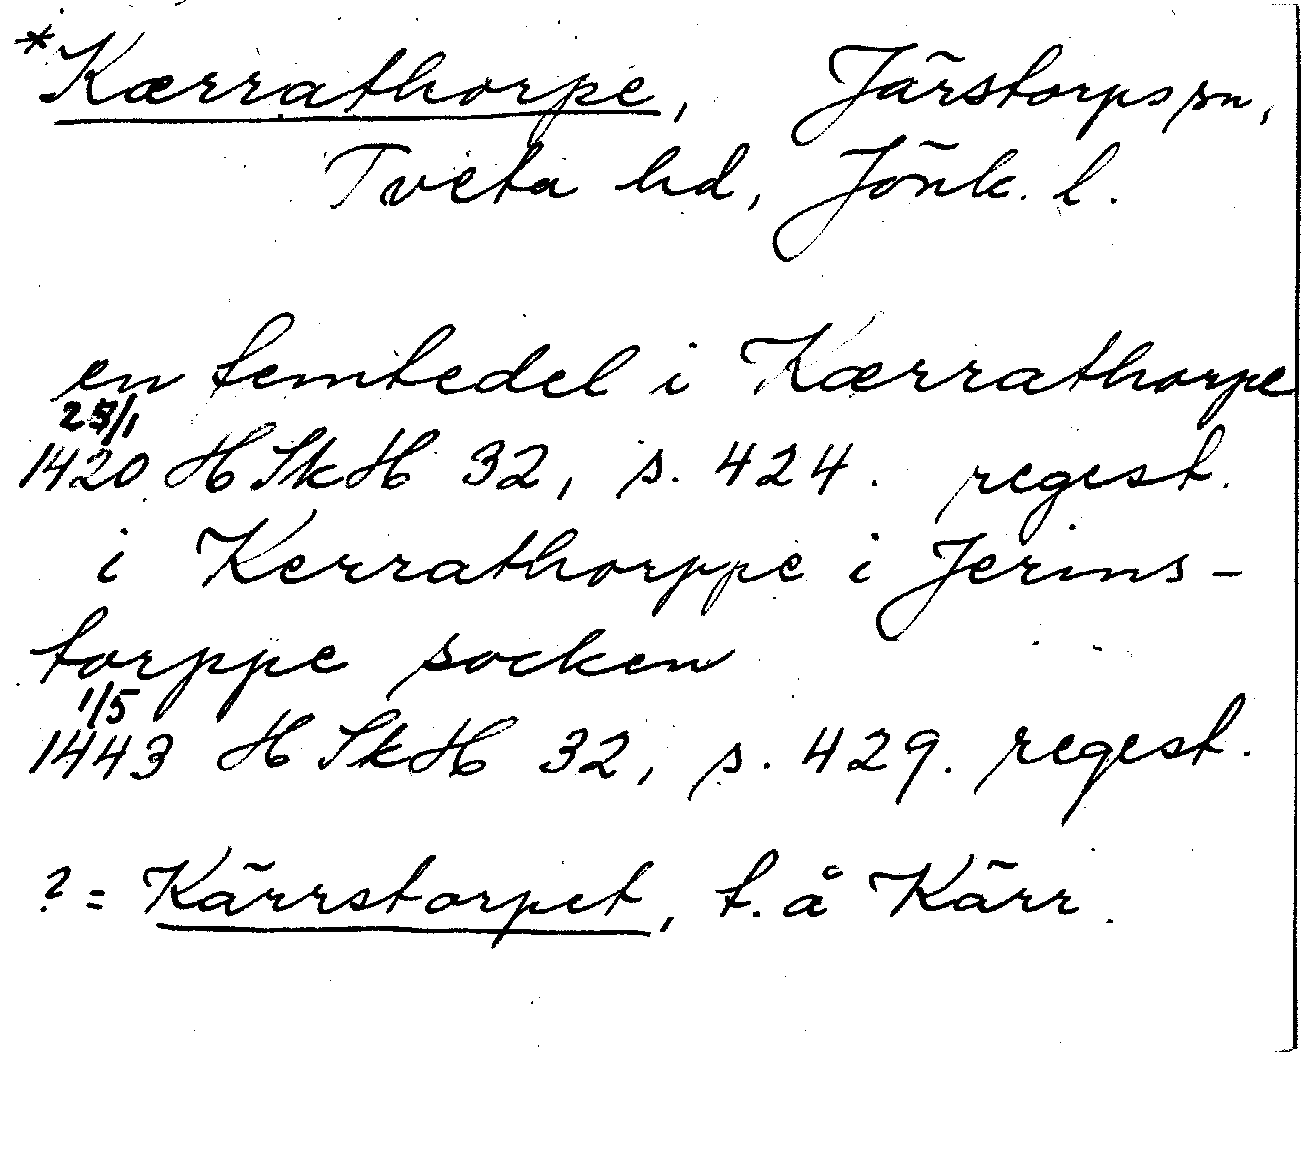 *Kærrathorpe, Järstorps sn,
Tveta hd, Jönk. l.
en femtedel i Kærrathorpe
25/1
1420 HSkH 32, s. 424. regest.
i Kerrathorppe i Jerins-
torppe socken
1/5
1443 HSkH 32, s. 429. regest.
? = Kärrstorpet, t. å Kärr.